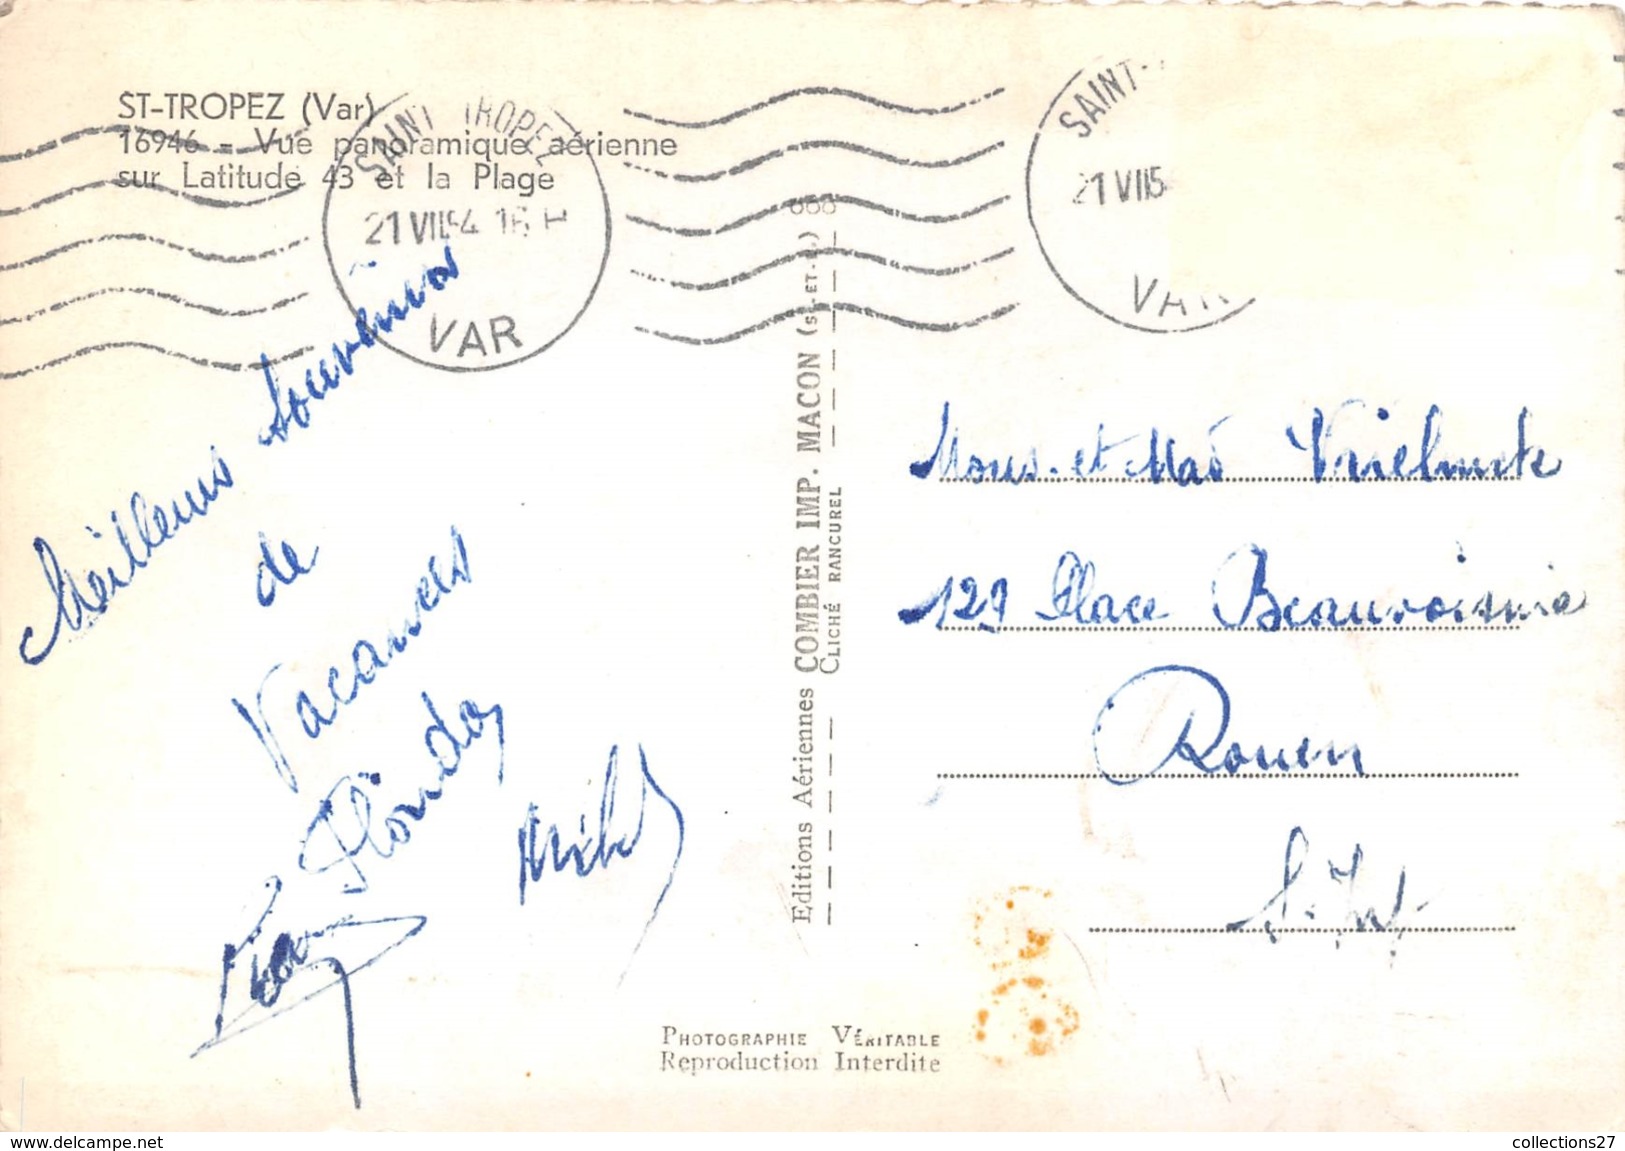 ST-TROPEZ (Var)
16946 - Vue panoramique aérienne
sur Latitude 43 et la Plage
SAINT TROPEZ
21 VII 54 16 H
VAR
SAINT-
21 VII 5
VAR
Meilleurs Souvenirs
de
Vacances
Editions Aériennes COMBIER IMP. MACON (S.-ET-L.)
CLICHÉ RANCUREL
Mons. et Mad
Place Beauvoisine
Rouen
S. Inf
PHOTOGRAPHIE VÉRITABLE
Reproduction Interdite
www.delcampe.net
collections27